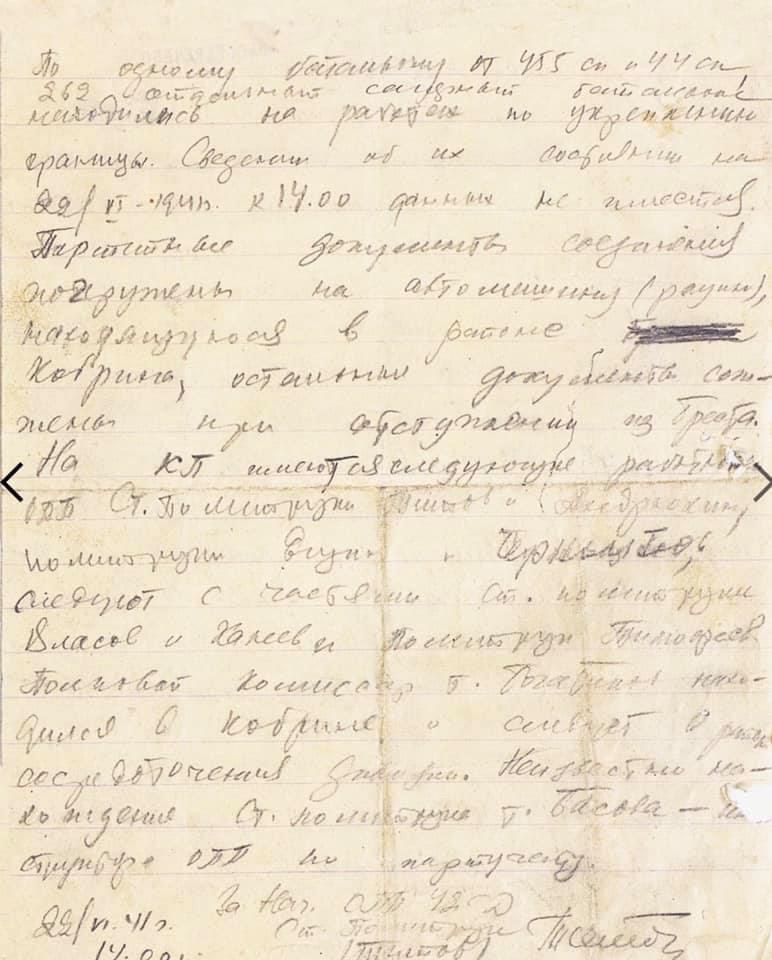 По одному батальону от 455 сп и 44 сп
262 отдельный саперный батальон
находились на работах по укреплению
границы. Сведений об их состоянии на
22/VI-1941г. к 14.00 данных не имеется.
Партийные документы соединения
погружены на автомашины (рацию),
находящуюся в районе
Кобрина, остальные документы сож-
жены при отступлении из Бреста.
На КП имеются следующие работники
ОПП Ст. Политруки Титов и
политруки и
следуют с частями ст. политруки
Власов и Ханеев и Политрук Тимофеев.
Полковой комиссар т. нахо-
дился в Кобрине и следует в район
сосредоточения дивизии. Неизвестно на-
хождение Ст. политрука т. Басова — ин-
структора ОПП по партучету.
За Нач. ОПП 42СД
22/VI.41г. Ст. Политрук
14.00 (Титов)